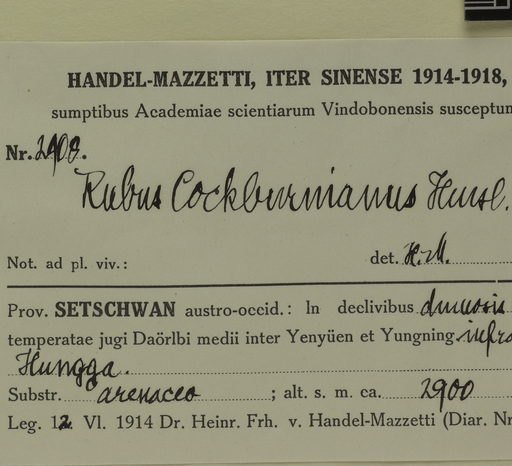 HANDEL-MAZZETTI, ITER SINENSE 1914-1918,
sumptibus Academiae scientiarum Vindobonensis susceptum
Nr. 2908.
Rubus Cockburnianus Hemsl.
Not. ad pl. viv.: det. H.-M.
Prov. SETSCHWAN austro-occid.: In declivibus dumosis
temperatae jugi Daörlbi medii inter Yenyüen et Yungning infra
Hungga.
Substr. arenaceo ; alt. s. m. ca. 2900
Leg. 12. VI. 1914 Dr. Heinr. Frh. v. Handel-Mazzetti (Diar. Nr